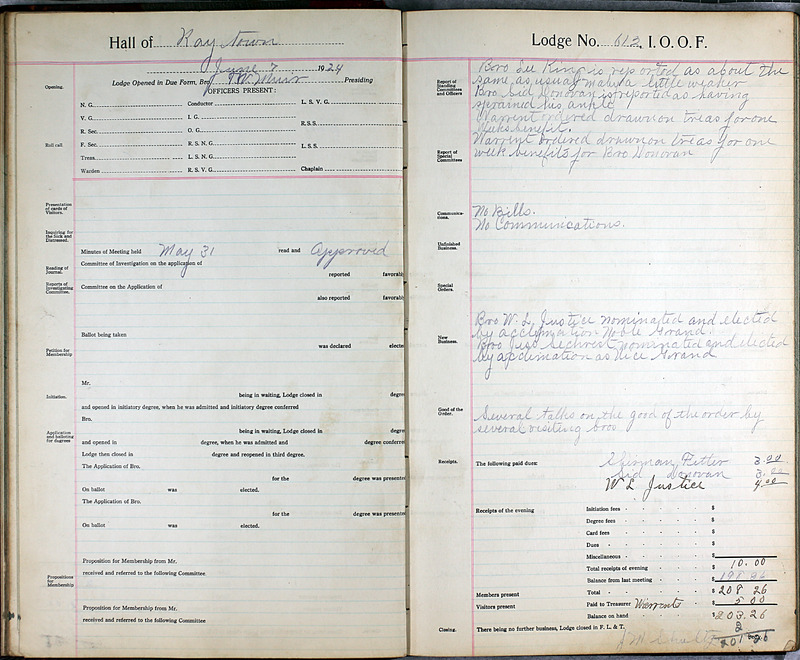 Hall of Ray town
June 7 1924
Lodge Opened in Due Form, Bro. J W Muir Presiding
OFFICERS PRESENT:
Opening.
N. G. Conductor L. S. V. G.
V. G. I. G. R.S.S.
R. Sec. O. G.
Roll call F. Sec. R. S. N. G. L. S. S.
Treas. L. S. N. G.
Warden R. S. V. G. Chaplain
Presentation
of cards of
Visitors.
Inquiring for
the Sick and
Distressed.
Minutes of Meeting held May 31 read and Approved
Reading of
Journal.
Committee of Investigation on the application of
reported favorabl
Reports of
Investigating
Committee.
Committee on the Application of
also reported favorabl
Ballot being taken
was declared electe
Petition for
Membership
Mr.
Initiation.
being in waiting, Lodge closed in degre
and opened in initiatory degree, when he was admitted and initiatory degree conferred
Bro.
Application
and balloting
for degrees
being in waiting, Lodge closed in degre
and opened in degree, when he was admitted and degree conferre
Lodge then closed in degree and reopened in third degree.
The Application of Bro.
for the degree was presente
On ballot was elected.
The Application of Bro.
for the degree was presente
On ballot was elected.
Proposition for Membership from Mr.
Propositions
for
Membership
received and referred to the following Committee
Proposition for Membership from Mr.
received and referred to the following Committee
Lodge No. 613, I. O. O. F.
Report of
Standing
Committees
and Officers
Bro Lee King is reported as about the
same as usual maby a little weaker
Bro Sid Donovan is reported as having
sprained his ankle
Warrent ordered drawn on treas for one
weeks benefit.
Report of
Special
Committees
Warrent ordered drawn on treas for one
week benefits for Bro Donovan
Communica-
tions.
No Bills.
No Communications.
Unfinished
Business.
Special
Orders.
New
Business.
Bro W. L. Justice nominated and elected
by acclimation Noble Grand.
Bro Sechrest nominated and elected
by acclimation as Vice Grand
Good of the
Order.
Several talks on the good of the order by
several visiting bros
Receipts. The following paid dues: Fetter 3.00
Sid Donovan 3.00
W L Justice 4.00
Receipts of the evening Initiation fees $
Degree fees $
Card fees $
Dues $
Miscellaneous $
Total receipts of evening $ 10.00
Balance from last meeting $ 198 26
Members present Total $ 208 26
Visitors present Paid to Treasurer Warrents $ 5 00
Balance on hand $ 203.26
Closing. There being no further business, Lodge closed in F. L. & T. 2
201 26